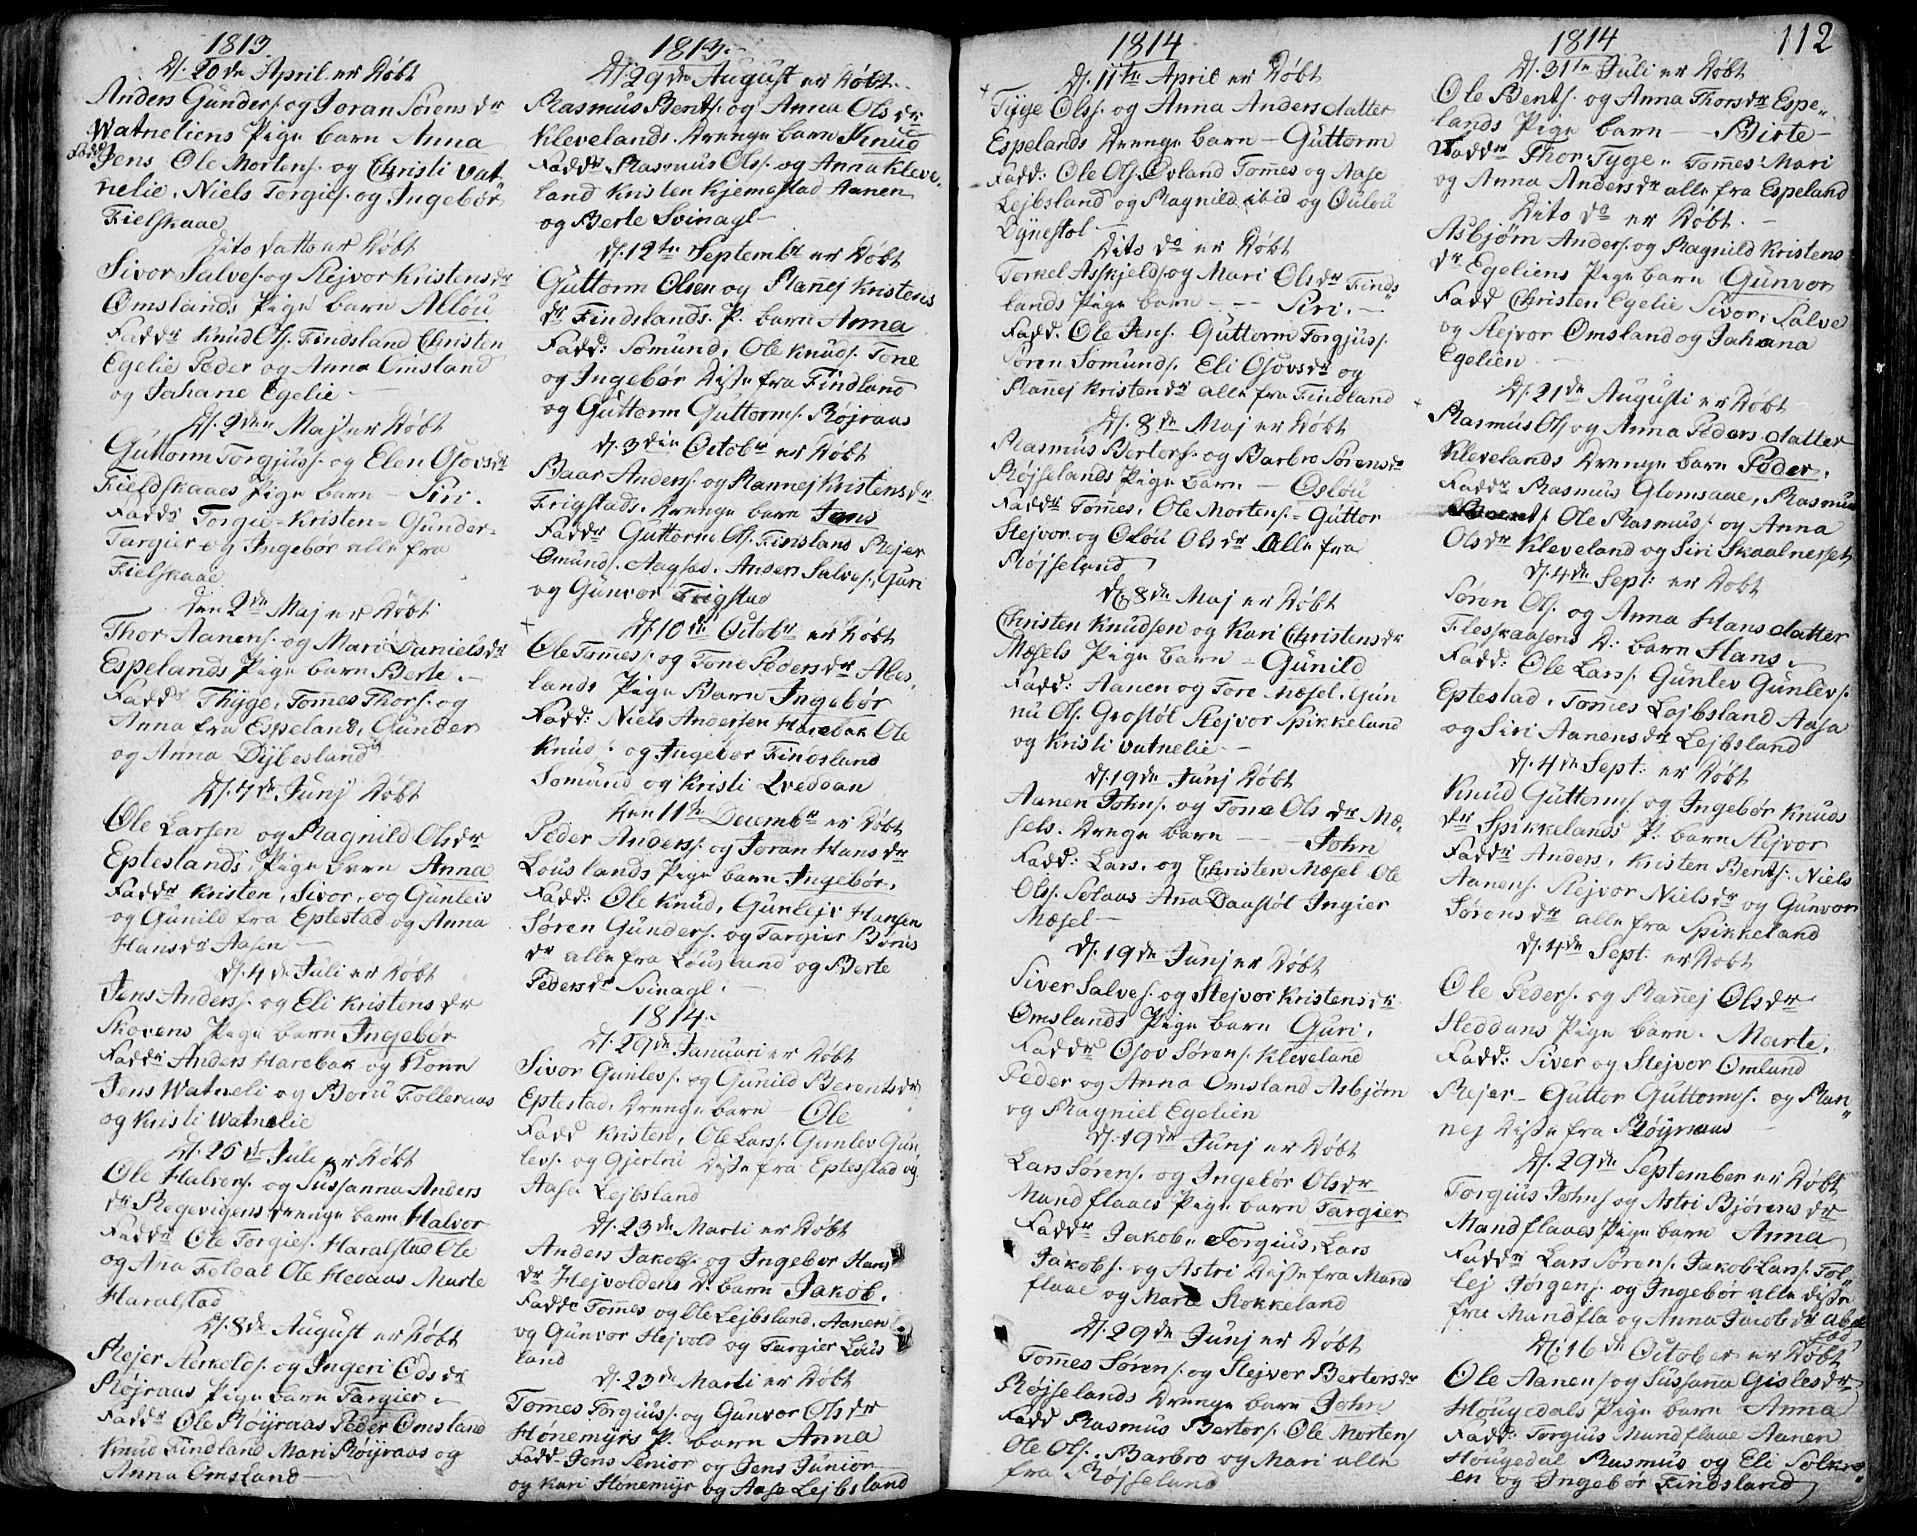 1813
D. 20de April er Døbt
Anders Gunders. og Joran Sørens dr
Watneliens Pige barn Anna
Jens Ole Mortens. og Christi Vat-
nelie, Niels Torgies. og Ingebør
Fielskaae
Dito datto er Døbt
Sivor Salves. og Stejvor Kristens dr
Omslands Pige barn Allou
Faddr Knud Ols. Findsland Christen
Egelie Peder og Anna Omsland
og Jahane Egelie
D. 2den Maj er Døbt
Guttorm Torgjuss. og Elen Osovs dr
Fieldskaaes Pige barn - Siri.
Faddr Torgie - Kristen - Gunder-
Targier og Ingebør alle fra
Fielskaae
Den 2de Maj er Døbt
Thor Aanens. og Mari Daniels dr
Espelands Pige barn Berte.-
Faddr Thyge, Tomes Thors. og
Anna fra Espeland, Gunder
og Anna Dijbesland
D. 7de Junj Døbt
Ole Larsen og Ragnild Ols dr
Epteslands, Pige barn Anna
Faddr Kristen, Sivor, og Gunleiv
og Gunild fra Eptestad og Anna
Hans dr Aasen
D. 4de Juli er Døbt
Jens Anders. og Eli Kristens dr
Skovens Pige barn Ingebør
Faddr Anders Harebak og Kone
Jens Watneli og Boru Folleraas
og Kristi Watnelie
D. 25de Juli er Døbt
Ole Halvors. og Sussanna Anders
dr Regevigens Drenge barn Halvor
Faddr Ole Torgies. Haralstad Ole
og Ana Foldal Ole Hevaas Marte
Haralstad
D. 8de August er Døbt
Rejer Askelds. og Ingeri Ods dr
Røjraas Pige barn Targier.
Faddr Ole Røyraas Peder Omsland
Knud Findland Mari Røyraas og
Anna Omsland
1813.-
D. 29de August er Døbt
Rasmus Bents. og Anna Ols dr
Klevelands Drenge barn Knud
Faddr Rasmus Ols. og Anna Kleve-
land Kristen Kjemestad Aanen
og Berte Svinagl-
D. 12te Septembr er Døbt
Guttorm Olsen og Ranej Kristens
dr Findslands. P. barn Anna
Fadd: Somund, Ole Knuds. Tone
og Ingebør Disse fra Findland
og Guttorm Guttorms. Røjraas
D. 3die Octobr er Døbt
Baar Anders. og Rannej Kristens dr
Frigstads. Drenge barn Jens
Faddr Guttorm Ols. Finslans Rejer
Omunds. Aagsad. Anders Salves. Guri
og Gunvor Frigstad
D. 10de Octobr er Døbt
Ole Tomes. og Tone Peders dr Ales-
lands Pige Barn Ingebør
Fadd: Niels Andersen Harebak Ole
Knud. og Ingebør Findsland
Somund og Kristi Qveddan
Den 11te Decembr er Døbt
Peder Anders. og Joran Hans dr
Louslands Pige barn Ingebør,
Fadd: Ole Knud, Gunlejv Hansen
Søren Gunders. og Targier Børus
dr alle fra Lousland og Berte
Peders dr Svinagl.-
1814.
D. 29de Januari er Døbt
Sivor Gunlevs. og Gunild Berents dr
Eptestad. Drenge barn - Ole
Fadd Kristen, Ole Lars. Gunlev Gun-
levs. og Gjertru Disse fra Eptesstad og
Aase Lejbsland
D. 23de Marti er Døbt
Anders Jakobs. og Ingebor Hans
dr Hejvoldens D. barn Jakob.
Faddr Tomes og Ole Lejbsland. Aanen
og Gunvor Hejvold og Targier Lous
land
D. 23de Marti er Døbt
Tomes Torgiuss. og Gunvor Ols dr
Honemyrs P. barn Anna
Fadd. Jens Senior og Jens Junior
og Kari Honemyr og Aase Lejbsland
1814
D. 11te April er Døbt
Tyge Ols. og Anna Anders datter
Espelands Drenge barn - Guttorm
Fadd: Ole Ols. Øvland Tomes og Aase
Lejbsland og Ragnild ibid og Oulou
Dynestol -
Dito Do er Døbt
Torkel Askjelds. og Mari Ols dr Finds-
lands Pige barn - - Siri.-
Fadd. Ole Jens. Guttorm Torgjuss.
Søren Somunds. Eli Osovs dr og
Ranej Kristen dr alle fra Findland
D. 8de Maj er Døbt
Rasmus Bertors. og Barbro Sørens dr
Røjselands Pige barn - Oslou
Faddr Tomes, Ole Mortens. - Guttor
Stejvor og Olou Ols dr Alle fra
Røjseland
D. 8de Maj er Døbt
Christen Knudsen og Kari Christens dr
Mæsels Pige barn - Gunild
Fadd: Aanen og Tore Mæsel. Gun
nu Ols. Grostøl Stejvor Spikkeland
og Kristi Vatnelie -
D. 19de Junj Døbt
Aanen Johns. og Tone Ols dr Mæ-
sels. Drenge barn - - John
Fadd: Lars, og Christen Mæsel Ole
Ols. Solaas Ana Daastøl Ingier
Mæsel -
D. 19de Junj er Døbt
Siver Salves. og Stejvor Kristens dr
Omslands Pige barn Guri.
Faddr Osov Sørens. Kleveland
Peder og Anna Omsland Asbjørn
og Ragniel Egelien
D. 19de Junj er Døbt
Lars Sørens. og Ingebør Ols dr
Mandflaaes Pige barn Targier
Faddr Jakob. Torgius, Lars
Jakobs. og Astri Disse fra Mand
flaae og Marte Stokkeland
D. 29de Junj er Døbt
Tomes Sørens. og Stejvor Bertors dr
Røjselands Drenge barn John
Fadd Rasmus Bertors. Ole Mortens
Ole Ols. Barbro og Mari alle
fra Røjseland
1814
112
D. 31te Juli er Døbt
Ole Bents. og Anna Thors dr Espe-
lands Pige barn - Birte -
Faddr Thor. Tyge. Tomes. Mari
og Anna Anders dr alle fra Espeland
Dito do er Døbt. -
Asbjørn Anders. og Ragnild Kristens
dr Egeliens Pige barn Gunvor
Fadd Christen Egelie Sivor, Salve
og Stejvor Omsland og Jahana
Egelien
D. 21de Augusti er Døbt
Rasmus Ols. og Anna Peders datter
Klevelands Drenge barn Peder.
Faddr Rasmus Glomsaae, Rasmus
Berents. Ole Rasmus. og Anna
Ols dr Kleveland og Siri Skaalnesset
D. 4de Sept: er Døbt
Søren Ols. og Anna Hans datter
Fleskaasens D: barn Hans.
Fadd: Ole Lars. Gunlev Gunlevs.
Eptestad. Tomes Lejbsland Aasa
og Siri Aanens dr Lejbsland
D. 4de Sept: er Døbt
Knud Guttorms. og Ingebør Knuds
dr Spikkelands P: barn Stejvor
Faddr Anders, Kristen Bents. Niels
Aanens. Stejvor Niels dr og Gunvor
Sørens dr alle fra Spikkeland
D. 4de Sept. er Døbt
Ole Peders. og Ranej Ols dr
Heddans Pige barn. Marte.
Fadd: Siver og Stejvor Omland
Rejer - Guttor Guttorms. og Ran-
nej Disse fra Røyraas
D. 29de September er Døbt
Torgius Johns. og Astri Bjørens dr
Mandflaaes Pige barn Anna
Faddr Lars Sørens. Jakob Lars. Tol-
lej Jørgens. og Ingebør alle Disse
fra Mandfla og Anna Jacob dr
D. 16de October er Døbt
Ole Aanens. og Sussana Gisles dr
Hougedals Pige barn Anna
Fadd: Torgius Mandflaae Aanen
Hougedal Rasmus og Eli Solkro-
en og Ingebør Findsland